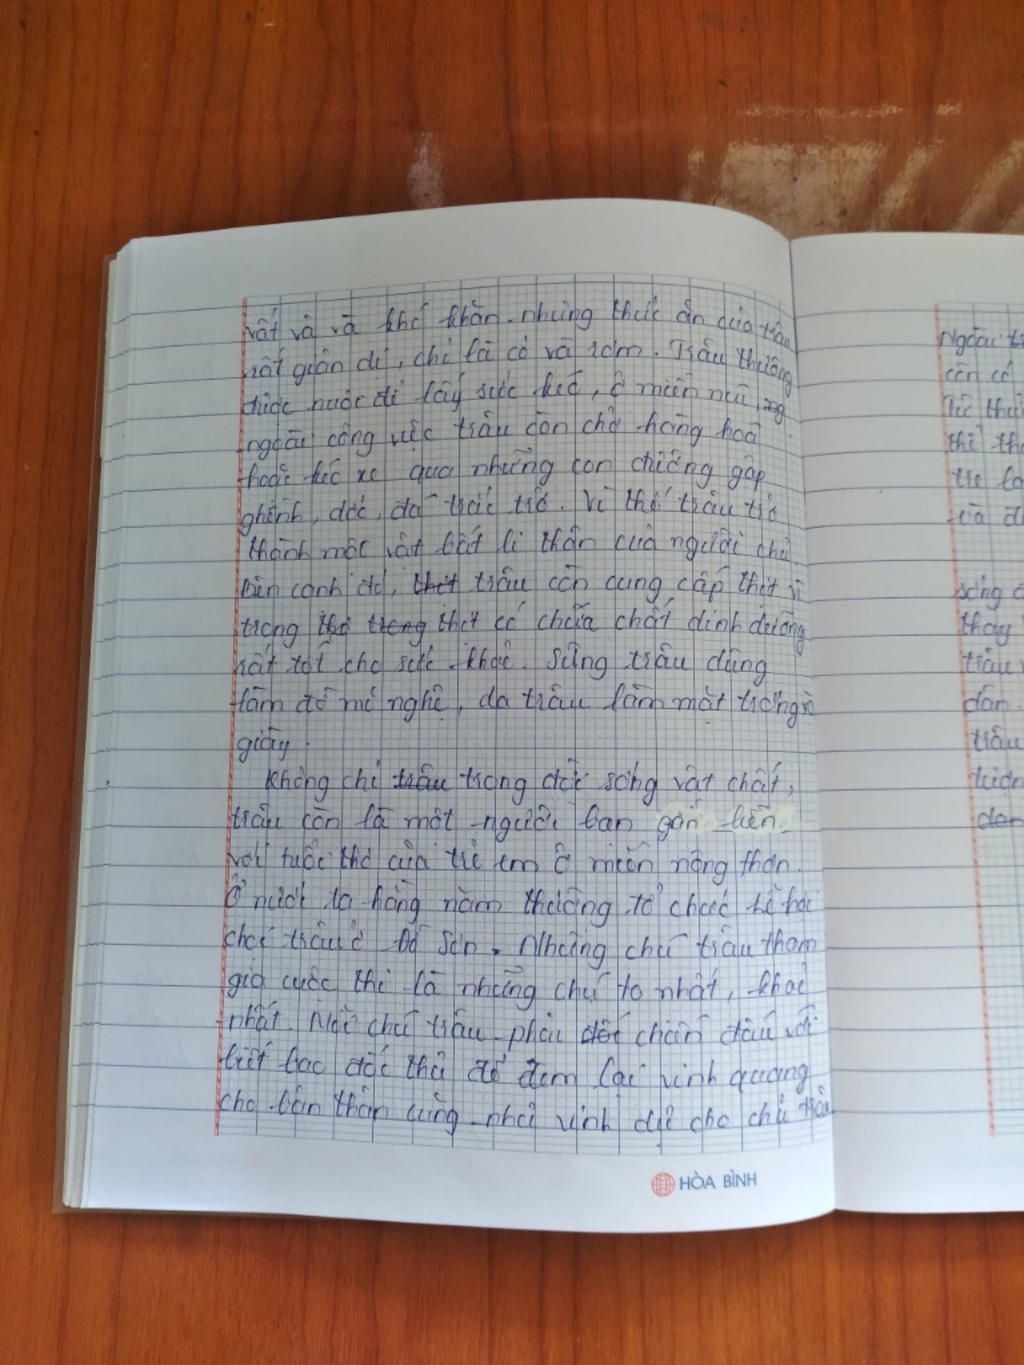 vất vả và khó khăn nhưng thức ăn của trâu
rất giản dị, chỉ là cỏ và rơm. Trâu thường
được nuôi để lấy sức kéo, ở miền núi,
ngoài công việc trâu còn chở hàng hoá
hoặc kéo xe qua những con đường gập
ghềnh, dốc, đá trắc trở. Vì thế trâu trở
thành một vật bất li thân của người chủ
Bên cạnh đó, thịt trâu còn cung cấp thịt vì
trong thớ trong thịt có chứa chất dinh dưỡng
rất tốt cho sức khoẻ. Sừng trâu dùng
làm đồ mĩ nghệ, da trâu làm mặt trống,
giày.
Không chỉ trâu trong đời sống vật chất,
trâu còn là một người bạn gắn liền
với tuổi thơ của trẻ em ở miền nông thôn.
Ở nước ta hằng năm thường tổ chức lễ hội
chọi trâu ở Đồ Sơn. Những chú trâu tham
gia cuộc thi là những chú to nhất, khoẻ
nhất. Mỗi chú trâu phải chiến đấu với
biết bao đối thủ để đem lại vinh quang
cho bản thân cũng như vinh dự cho chủ trâu
HÒA BÌNH
Ngoài
còn có
Từ
thì
tre
và
sống
thay
trâu
dân.
trâu